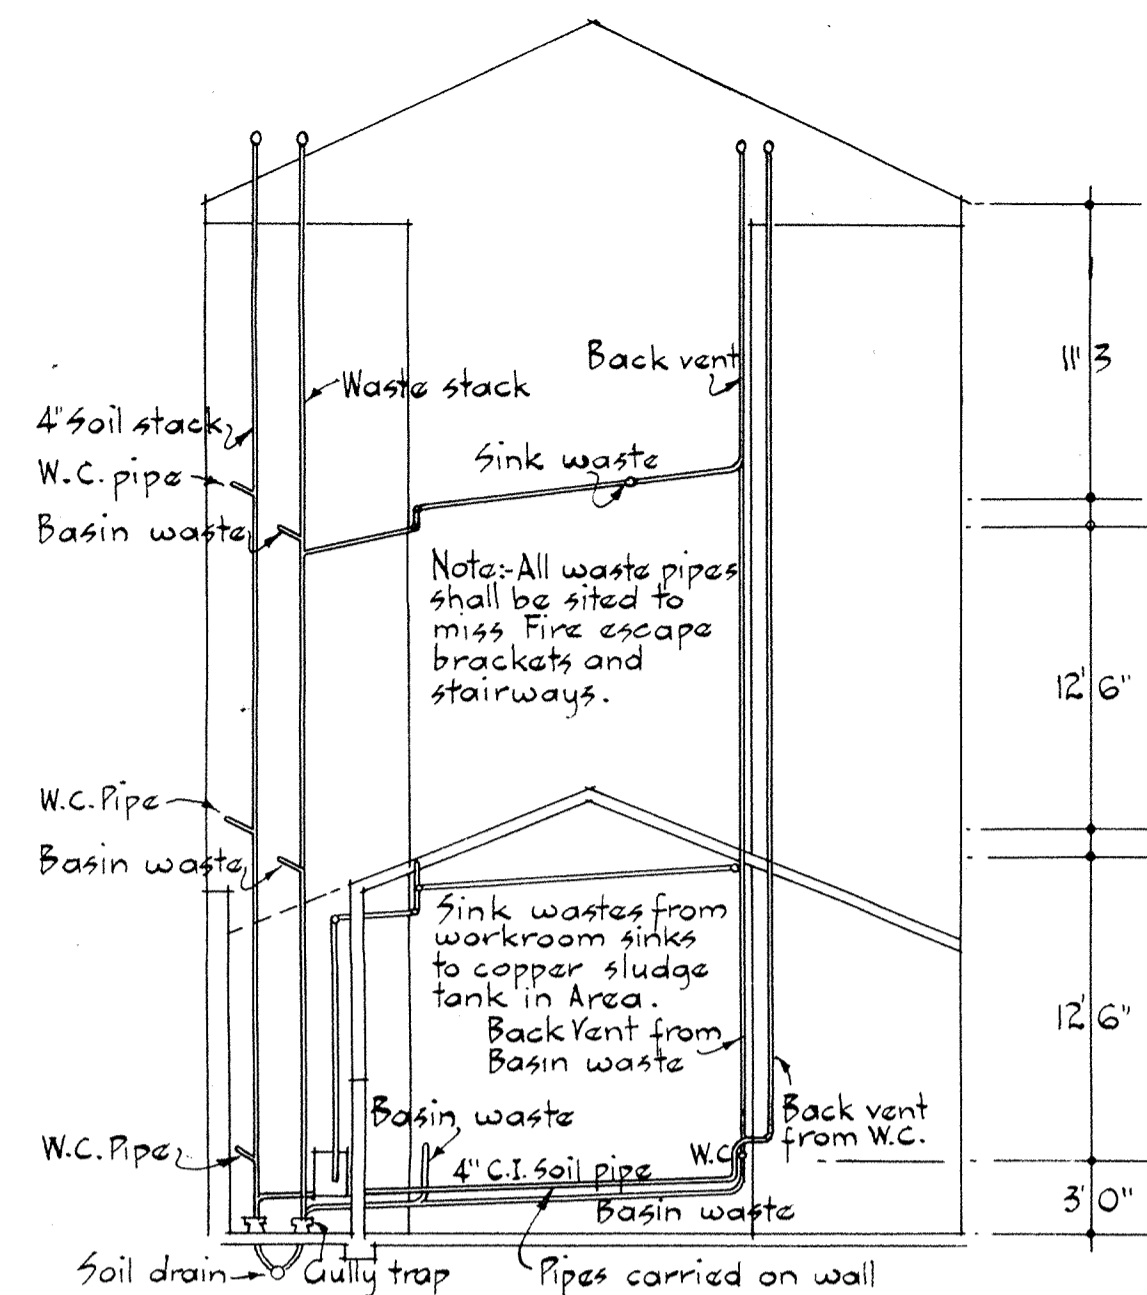 Back vent
11' 3
Waste stack
4" Soil stack
Sink waste
W.C. pipe
Basin waste
Note:- All waste pipes
shall be sited to
miss Fire escape
brackets and
stairways.
12' 6"
W.C. Pipe
Basin waste
Sink wastes from
workroom sinks
to copper sludge
tank in Area.
Back Vent from
Basin waste
12' 6"
Basin waste
Back vent
from W.C.
W.C. Pipe
W.C.
4" C.I. Soil pipe
Basin waste
3' 0"
Soil drain
Gully trap
Pipes carried on wall